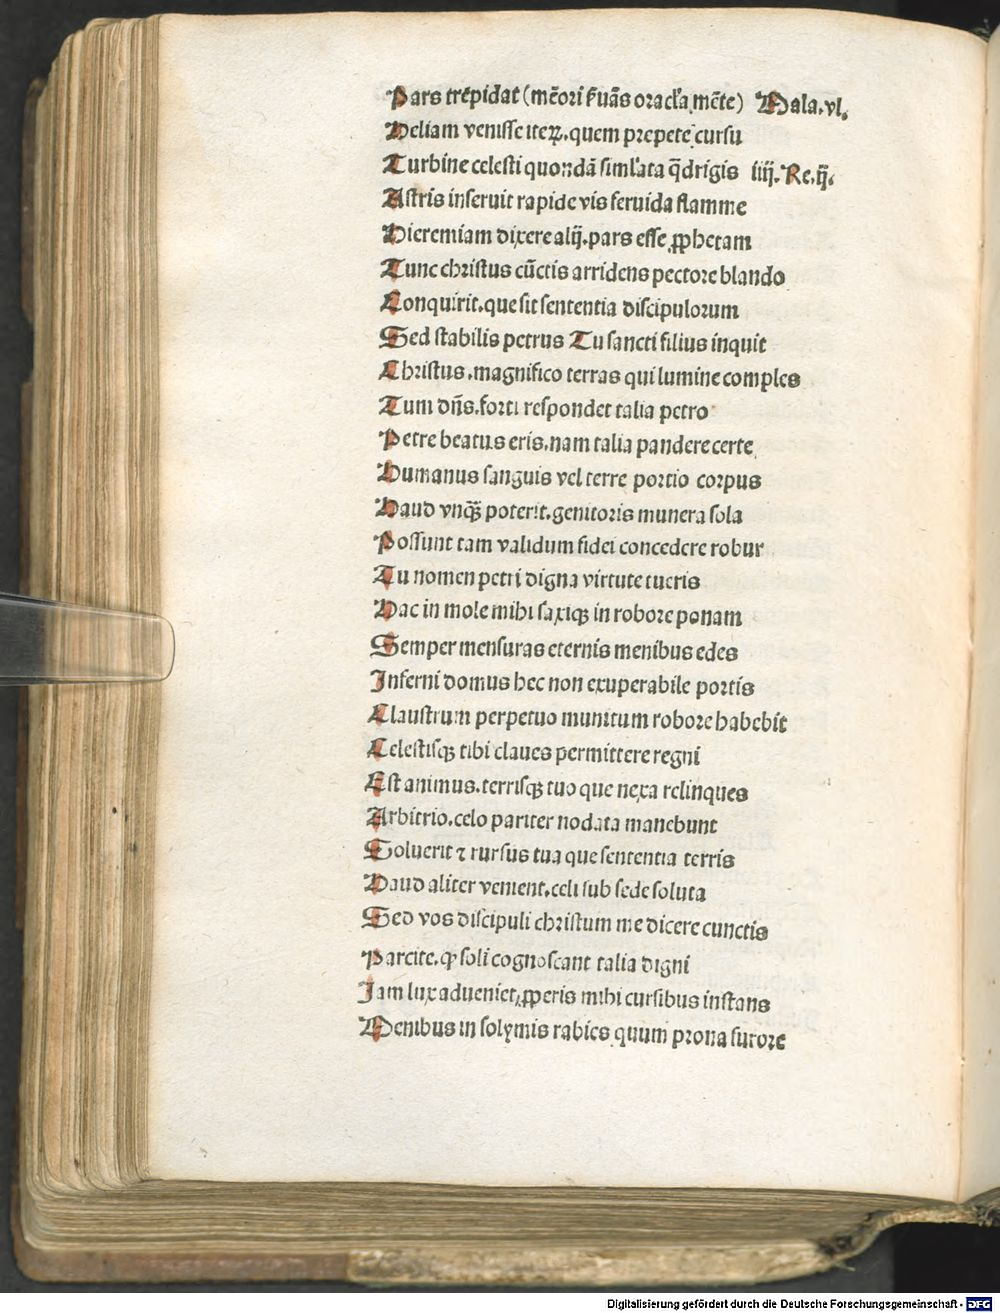 Pars trēpidat (mēori ẜuās oracl'a mēte) Mala.vl.
Heliam venisse iteꝝ.quem prepete cursu
Turbine celesti quondā siml'ata q̄drigis iiij.Re.ij.
Astris inseruit rapide vis feruida flamme
Hieremiam dixere alij.pars esse ꝓphetam
Tunc christus cūctis arridens pectore blando
Conquirit.que sit sententia discipulorum
Sed stabilis petrus Tu sancti filius inquit
Christus.magnifico terras qui lumine comples
Tum dn̄s.forti respondet talia petro
Petre beatus eris.nam talia pandere certe
Humanus sanguis vel terre portio corpus
Haud vnq̄ꝫ poterit.genitoris munera sola
Possunt tam validum fidei concedere robur
Tu nomen petri digna virtute tueris
Hac in mole mihi saxiqꝫ in robore ponam
Semper mensuras eternis menibus edes
Inferni domus hec non exuperabile portis
Claustrum perpetuo munitum robore habebit
Celestisqꝫ tibi claues permittere regni
Est animus.terrisqꝫ tuo que nexa relinques
Arbitrio.celo pariter nodata manebunt
Soluerit ⁊ rursus tua que sententia terris
Haud aliter venient.celi sub sede soluta
Sed vos discipuli christum me dicere cunctis
Parcite.ꝙ soli cognoscant talia digni
Iam lux adueniet,ꝓperis mihi cursibus instans
Menibus in solymis rabies quum prona furore
Digitalisierung gefördert durch die Deutsche Forschungsgemeinschaft - DFG